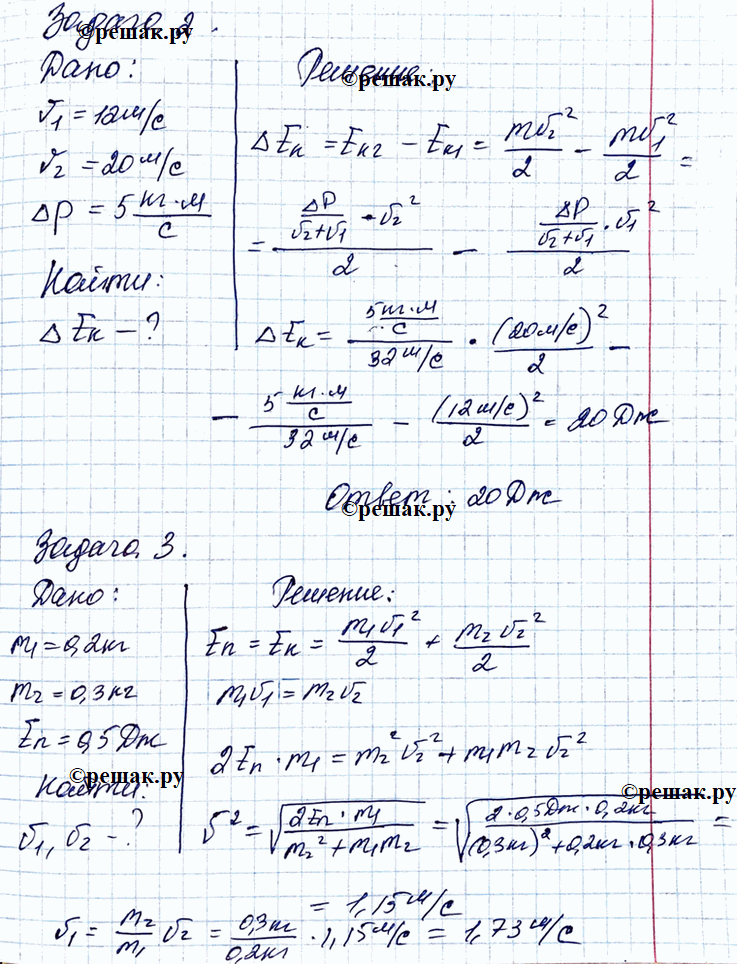 Задача 2.
©решак.ру
Дано:
v₁ = 12 м/с
v₂ = 20 м/с
Δp = 5 кг·м/с
Найти:
ΔEк – ?
Решение:
©решак.ру
ΔEк = Eк2 – Eк1 = mv₂²/2 – mv₁²/2 =
= (Δp/(v₂+v₁) · v₂²)/2 – (Δp/(v₂+v₁) · v₁²)/2
ΔEк = (5 кг·м/с)/(32 м/с) · (20 м/с)²/2 –
– (5 кг·м/с)/(32 м/с) – (12 м/с)²/2 = 20 Дж
Ответ: 20 Дж
©решак.ру
Задача 3.
Дано:
m₁ = 0,2 кг
m₂ = 0,3 кг
Eп = 0,5 Дж
©решак.ру
Найти:
v₁, v₂ – ?
Решение:
Eп = Eк = m₁v₁²/2 + m₂v₂²/2
m₁v₁ = m₂v₂
2Eп · m₁ = m₂²v₂² + m₁m₂v₂²
©решак.ру
v² = √(2Eп · m₁/(m₂² + m₁m₂)) = √(2 · 0,5 Дж · 0,2 кг/((0,3 кг)² + 0,2 кг · 0,3 кг)) =
= 1,15 м/с
v₁ = m₂/m₁ v₂ = 0,3 кг/0,2 кг · 1,15 м/с = 1,73 м/с